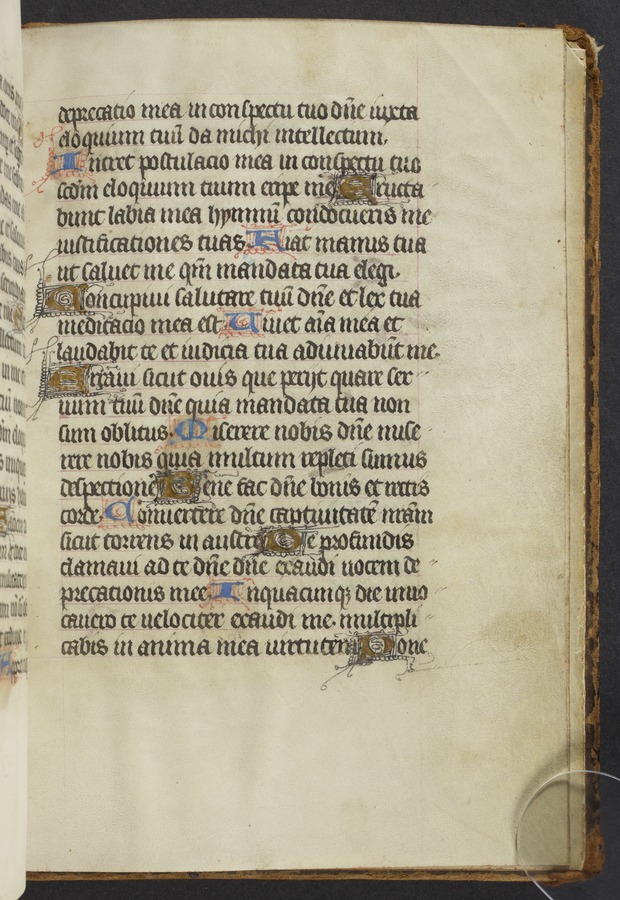 deprecatio mea in conspectu tuo dñe iuxta
eloquium tuũ da michi intellectum.
Intret postulacio mea in conspectu tuo
scdm eloquium tuum eripe me Eructa
bunt labia mea hymnũ cum docueris me
iustificationes tuas Fiat manus tua
ut saluet me qm̃ mandata tua elegi.
Concupiui salutare tuũ dñe et lex tua
meditacio mea est Uiuet aĩa mea et
laudabit te et iudicia tua adiuuabũt me.
Erraui sicut ouis que perijt quare ser
uum tuũ dñe quia mandata tua non
sum oblitus. Miserere nobis dñe mise
rere nobis quia multum repleti sumus
despectione Bene fac dñe bonis et rectis
corde. Conuertere dñe captiuitatẽ nr̃am
sicut torrens in austro De profundis
clamaui ad te dñe dñe exaudi uocem de
precationis mee. In quacumq; die inuo
cauero te uelociter exaudi me. multipli
cabis in anima mea uirtutem Pone